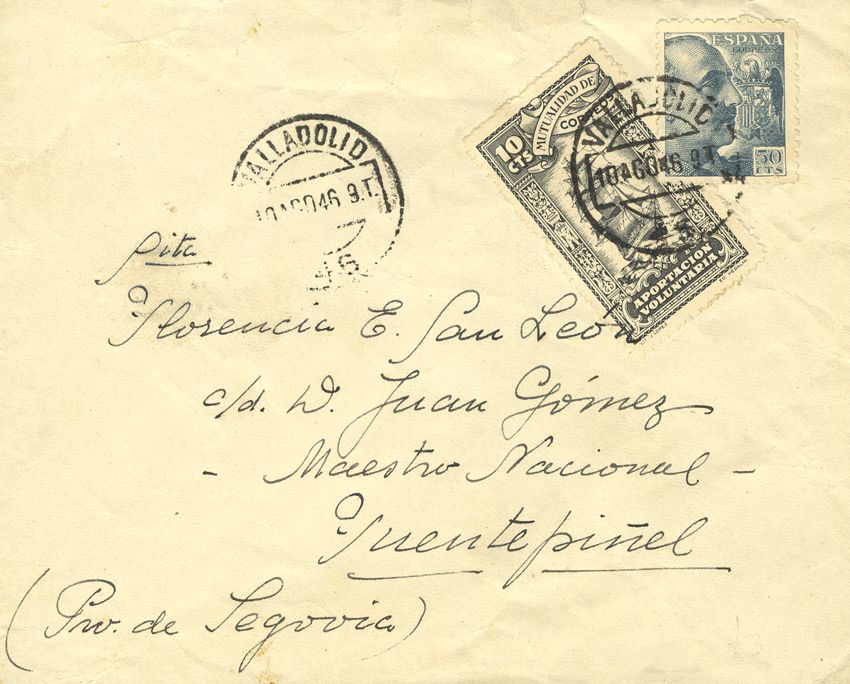 ESPAÑA
CORREOS
50
CTS
10
CTS
MUTUALIDAD DE
CORREOS
APORTACION
VOLUNTARIA
VALLADOLID
10AGO46 9.T.
VALLADOLID
10AGO46 9.T.
Srita
Florencia E. San León
c/d. D. Juan Gómez
- Maestro Nacional -
Fuentepiñel
(Prov. de Segovia)